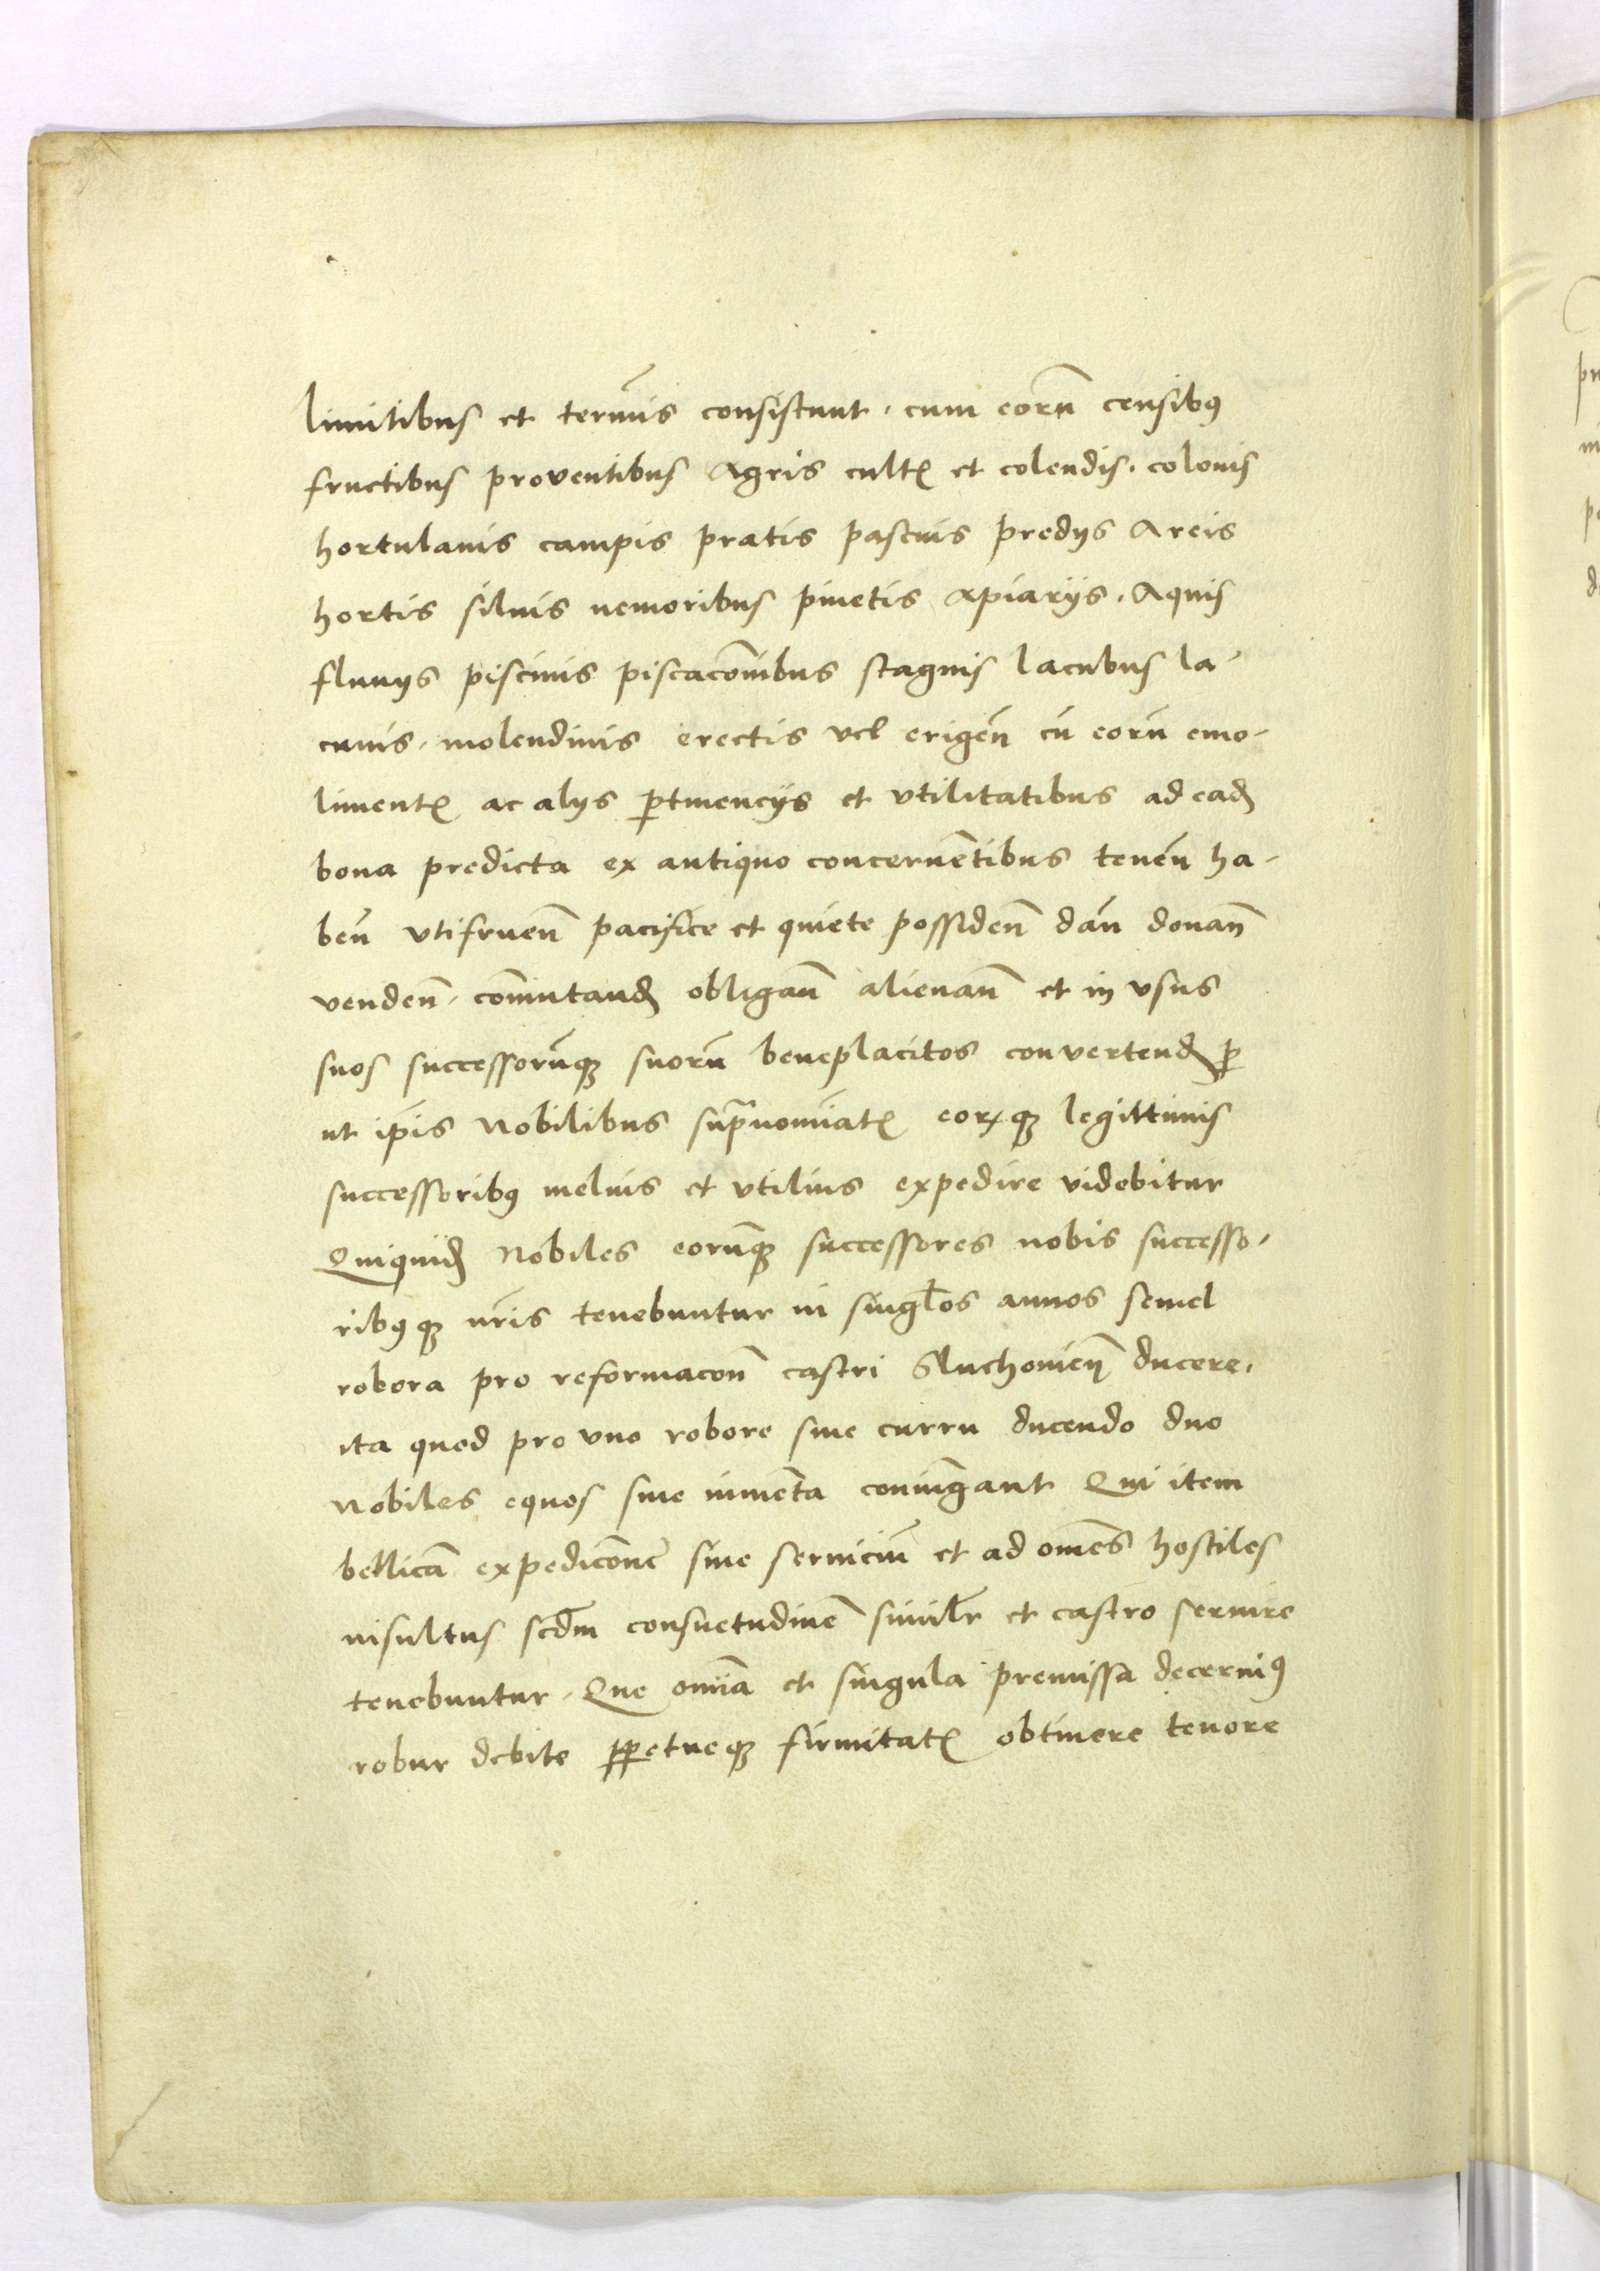 limitibus et termīs consistunt. cum eorū censibꝯ
fructibus proventibus Agris cultꝭ et colendis. colonis
hortulanis campis pratis pascuis predijs Areis
hortis siluis nemoribus pinetis Apiarijs. Aquis
fluuijs piscinis piscacōnibus stagnis lacubus la-
cunis. molendinis erectis vel erigeñ cū eorū emo-
limentꝭ ac alijs ꝑtinencijs et vtilitatibus ad eadꝫ
bona predicta ex antiquo concernētibus teneñ ha-
beñ vtifrueñ pacifice et quiete possideñ dañ donañ
vendeñ. cōmutandꝫ obligañ alienañ et in vsus
suos successorūqꝫ suorū beneplacitos convertendꝫ ꝓ
ut ip̄is Nobilibus sup̄nomīatꝭ eorꝝqꝫ legittimis
successoribꝯ melius et vtilius expedire videbitur
Quiquidꝫ Nobiles eorūqꝫ successores nobis successo-
ribꝯqꝫ nr̄is tenebuntur in singłos annos semel
robora pro reformacōn̄ castri Sluchomieñ ducere.
ita quod pro vno robore siue curru ducendo duo
Nobiles equos siue iumēta coniūgant Qui item
bellicā expedicōnē siue seruiciū et ad om̄es hostiles
insultus scd̄m consuetudinē simil̄r et castro seruire
tenebuntur. Que om̄ia et singula premissa decernimꝯ
robur debite ꝑpetueqꝫ firmitatꝭ obtinere tenore